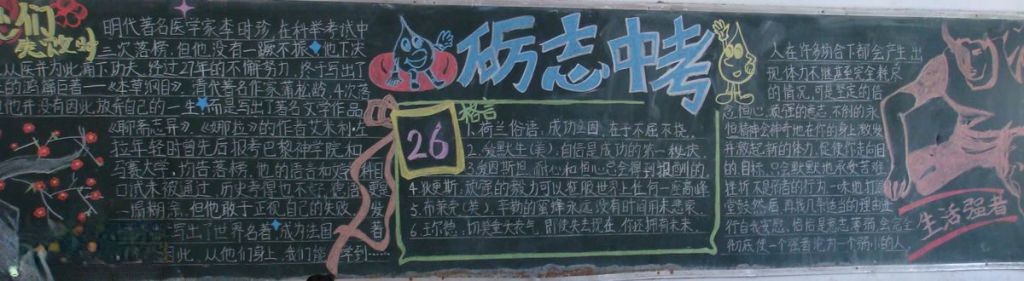 们
失败时
明代著名医学家李时珍,在科举考试中
三次落榜,但他没有一蹶不振,他下决
从医并为此痛下功夫,经过27年的不懈努力,终于写出了
的鸿篇巨着——《本草纲目》,清代著名作家蒲松龄,4次落
但他并没有因此放弃自己的一生,而是写出了著名文学作品
《聊斋志异》。《娜拉》的作者艾米利·左
拉年轻时曾先后报考巴黎神学院和
马赛大学,均落榜,他的语言和
口试未被通过,历史考得也不好,德语
一塌糊涂。但他敢于正视自己的失败,发
写出了世界名著,成为法国
此,从他们身上,我们能学到……
砺志中考
26
格言
1.荷兰俗语:成功立国,在于不屈不挠。
2.爱默生(美):自信是成功的第一秘诀。
3.爱因斯坦:耐心和恒心总会得到报酬的
4.狄更斯:顽强的毅力可以征服世界上任何一座高峰
5.布莱克(英):辛勤的蜜蜂永远没有时间用来悲哀。
6.王尔德:切莫垂头丧气,即使失去现在,你还拥有未来。
人在许多场合下都会产生出
现体力不继甚至完全耗尽
的情况,可是坚定的信
念、恒心、顽强的意志、不倒的永
恒精神会神奇地在你的身上激发
并激起新的体力,促使你走向目
的目标。只会默默地承受苦难
挫折不是弱者的行为,一味地打退
堂鼓,然后再找几个适当的理由进
行自我安慰,恰恰是意志薄弱,会完全
彻底使一个强者沦为一个弱小的人。
生活强者